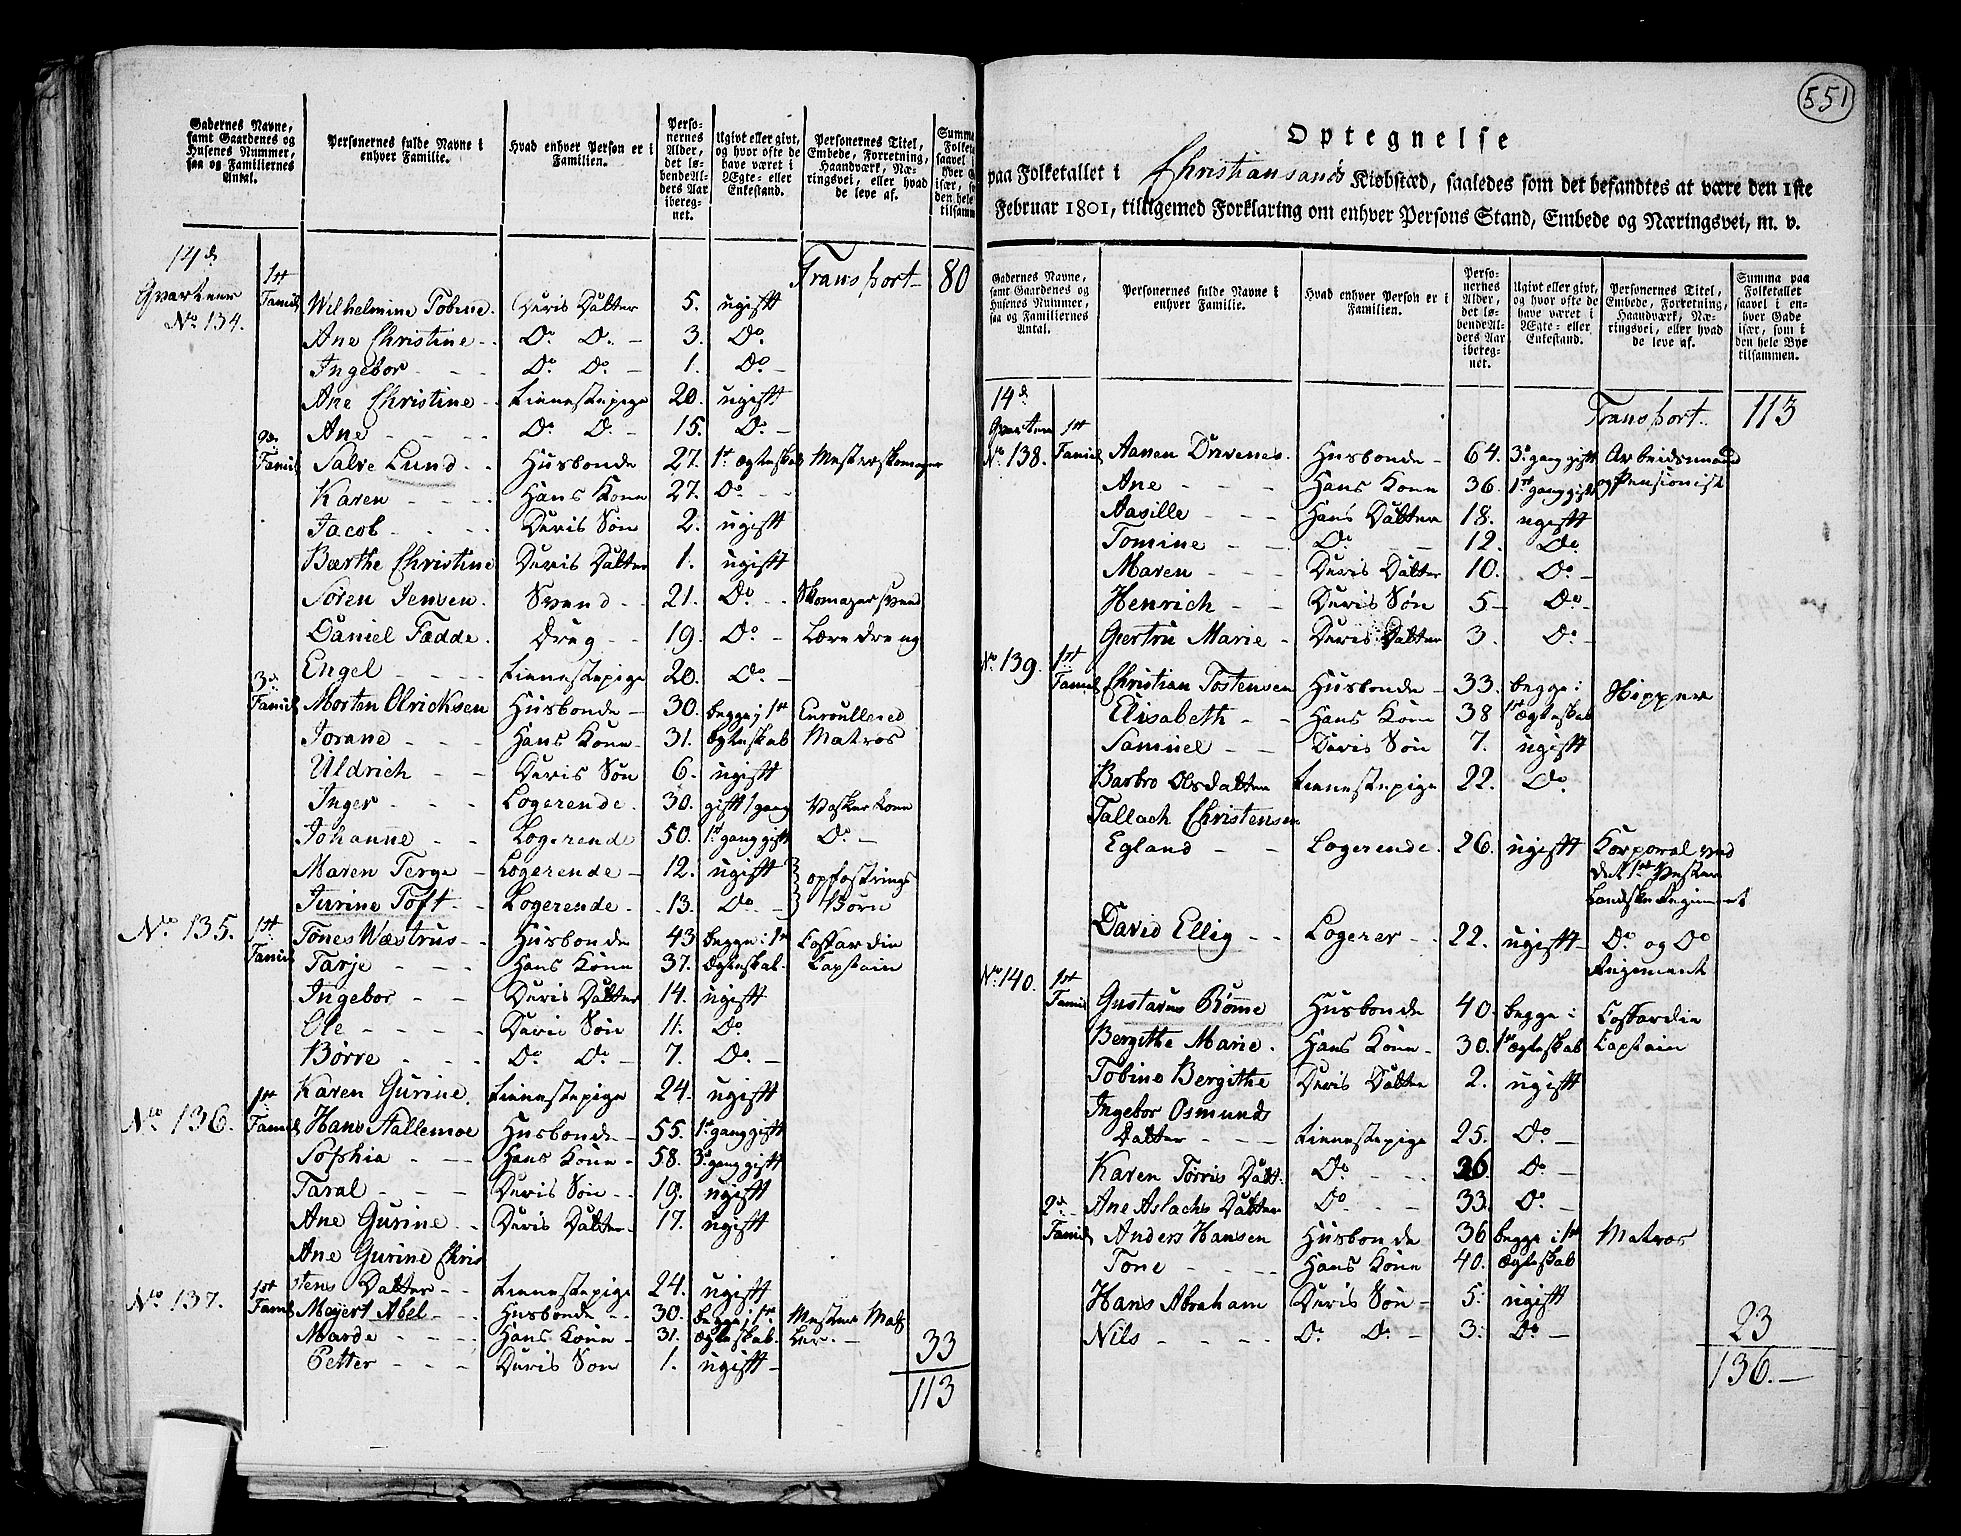 Gadernes Navne, samt Gaardenes og Husenes Nummer, saa og Familiernes Antal.
Personernes fulde Navne i enhver Familie.
Hvad enhver Person er i Familien.
Personernes Alder, det løbende Alders Aar iberegnet.
Ugivt eller givt, og hvor ofte de have været i Ægte- eller Enkestand.
Personernes Titel, Embede, Forretning, Haandværk, Næringsvei, eller hvad de leve af.
14de Transport 80
Qvarteer 1st
No. 134. Famil Wilhelmine Tobine. Deris Datter 5. ugift
Ane Christine Do. Do. 3. Do.
Ingebor Do. Do. 1. Do.
Ane Christine tienestepige 20. ugift
Ane Do. Do. 15. Do.
2de Famil Salve Lund Husbonde 27. 1st ægteskab Mesterskomager
Karen Hans Kone 27. Do.
Jacob Deris Søn 2. ugift
Bærthe Christine Deris Datter 1. ugift
Søren Jensen. Svend 21. Do. Skomagersvend
Daniel Fadde. Dreng 19. Do. Læredreng
Engel tienestepige 20. Do.
3de Famil Morten Olricksen Husbonde 30. begge i 1st Enroulleret
Jorane Hans Kone 31. ægteskab Matros
Uldrich Deris Søn 6. ugift
Inger Logerende. 30. gift 1 gang Vaskerkone
Johanne Logerende 50. 1st gang gift Do.
Maren Terge Logerende 12. ugift opfostrings
Jurine Toft Logerende 13. Do. Børn
No. 135. 1st Famil Tønes Wæstrus Husbonde 43 begge i 1st Coffardie
Tarje Hans Kone 37. ægteskab. Captain
Ingebor Deris Datter 14. ugift
Ole Deris Søn 11. Do.
Børre Do. Do. 7. Do.
Karen Gurine. tienestepige 24. ugift
No. 136. 1st Famil Hans Aallemoe Husbonde 55. 1st gang gift
Sophia Hans Kone 58. 3de gang gift
Taral Deris Søn 19. ugift
Ane Gurine Deris Datter 17. ugift
Ane Gurine Chris
tens Datter tienestepige 24. ugift
No. 137. 1st Famil Meyert Abel Husbonde 30. begge i 1st Mester
Marde Hans Kone 31. ægteskab.
Petter Deris Søn 1. ugift 33
113
551
Optegnelse
paa Folketallet i Christiansands Kiøbstæd, saaledes som det befandtes at være den 1ste
Februar 1801, tilligemed Forklaring om enhver Persons Stand, Embede og Næringsvei, m. v.
Gadernes Navne, samt Gaardenes og Husenes Nummer, saa og Familiernes Antal.
Personernes fulde Navne i enhver Familie.
Hvad enhver Person er i Familien.
Personernes Alder, det løbende Alders Aar iberegnet.
Ugivt eller givt, og hvor ofte de have været i Ægte- eller Enkestand.
Personernes Titel, Embede, Forretning, Haandværk, Næringsvei, eller hvad de leve af.
Summa paa Folketallet saavel i enhver Gade især, som i den hele Bye tilsammen.
14de Transport 113
Qvarteer 1st
No. 138. Famil Aanen Drivenes. Husbonde 64. 3de gang gift Arbeidsmand
Ane Hans Kone 36. 1st gang gift og Pensionist
Aasille Hans Datter 18. ugift
Tomine Do. 12. Do.
Maren Deris Datter 10. Do.
Henrich Deris Søn 5 Do.
Giertru Marie Deris Datter 3. Do.
No. 139. 1st Famil Christian Tostensen Husbonde 33. begge i Skipper
Elisabeth Hans Kone 38 1st ægteskab
Samuel Deris Søn 7. ugift
Barbro Olsdatter tienestepige 22. Do.
Tallach Christensen
Egland Logerende. 26. ugift Korporal ved
det 1st Vester
Landske Regiment
David Ellig Logerer 22. ugift Do og Do
Regiment
No. 140. 1st Famil Gustavus Rømme Husbonde 40. begge i Coffardie
Bergithe Marie. Hans Kone 30. 1st ægteskab Captain
Tobine Bergithe Deris Datter 2. ugift
Ingebor Osmunds
Datter tienestepige 25. Do.
Karen Torris Datt. Do. 26. Do.
Ane Aslachs Datter Do 33. Do.
2de Famil Anders Hansen Husbonde 36 begge i 1st Matros
Tone Hans Kone 40. ægteskab
Hans Abraham Deris Søn 5. ugift
Nils Do. Do. 3. Do. 23
136.